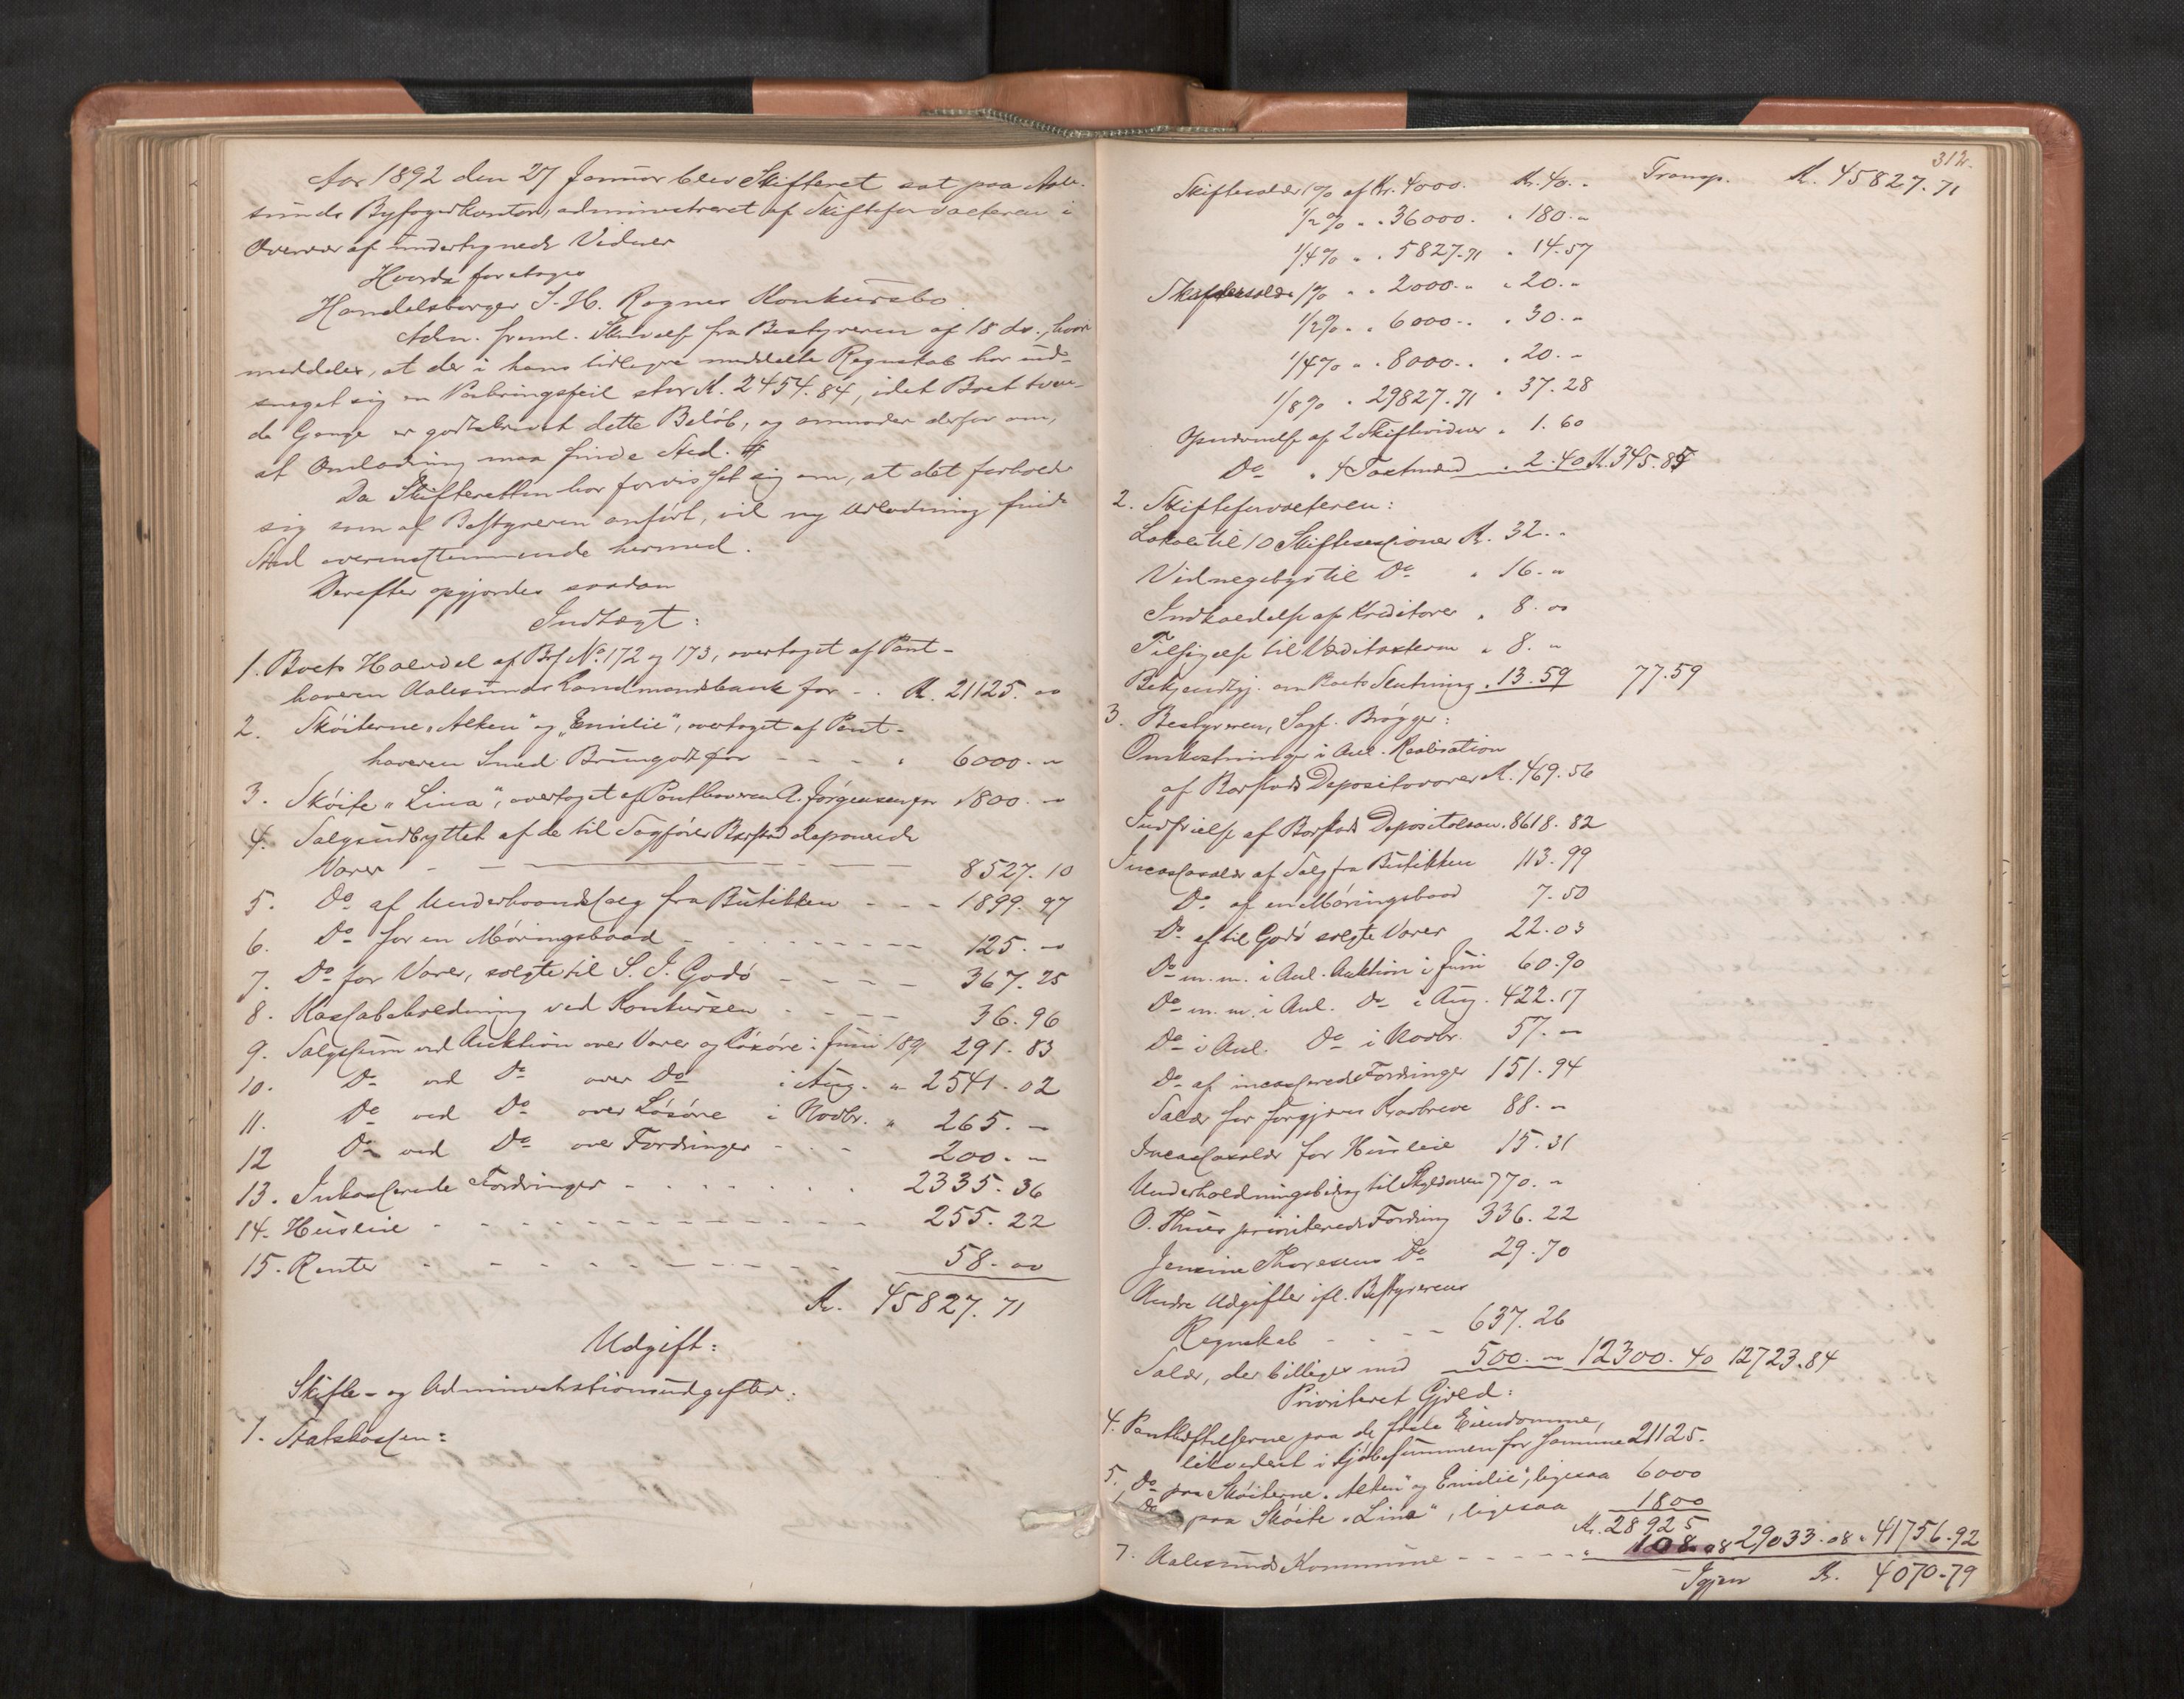 Aar 1892 den 27 Januar blev Skifteret sat paa Aale-
sunds Byfogedkontor, administreret af Skifteforvalteren i
Overvær af undertegnede Vidner
Hvorda foretoges
Handelsborger S. H. Rognes Konkursbo.
Adm. freml. Skrivelse fra Bestyreren af 18 ds., hvori
meddeles, at der i hans tidligere meddelte Regnskab har ind-
sneget sig en Posteringsfeil stor Kr. 2454.84, idet Boet tven-
de Gange er godtskrevet dette Beløb, og anmoder derfor om,
at Omlodning maa finde Sted.
Da Skifteretten har forvisset sig om, at det forholder
sig som af Bestyreren anført, vil ny Udlodning finde
Sted overensstemmende hermed.
Derefter opgjordes saadan
Indtægt:
1. Boets Halvdel af Brf. No. 172 og 173, overtaget af Pant-
haveren Aalesunds Landmandsbank for - . Kr. 21125. "
2. Skøiterne "Alken" og "Emilie", overtaget af Pant-
haveren Smed Brungodt for - - - - " 6000. "
3. Skøite "Lina", overtaget af Panthaveren A. Jørgensen for 1800. "
4. Salgsudbyttet af de til Sagfører Barstad deponerede
Varer - - - - 8527.10
5. Do af Underhaandssalg fra Butikken - - - 1899.97
6. Do for en Møringsbaad - - - - - 125. "
7. Do for Varer, solgte til S. J. Godø - - - - 367.25
8. Kassabeholdning ved Konkursen - - - - 36.96
9. Salgssum ved Auktion over Varer og Løsøre i Juni 1891 291.83
10. Do ved Do over Do i Aug. " 2541.02
11. Do ved Do over Løsøre i Novbr. " 265. -
12 Do ved Do over Fordringer - - - 200. "
13. Inkasserede Fordringer - - - - - 2335.36
14. Husleie - - - - - - - - - - 255.22
15. Renter - - - - - - - - - 58. "
Kr. 45827.71
Udgift:
Skifte- og Administrationsudgifter:
1. Statskassen:
312.
Skiftesalær 1% af Kr. 4000. Kr. 40. " Transp. Kr. 45827.71
1/2% " . 36000. " 180. "
1/4% " . 5827.71 " 14.57
1% " " 2000. " " 20. "
1/2% " " 6000. " " 30. "
1/4% " . 8000. " . 20. "
1/8% " 29827.71 " 37.28
Opnævnelse af 2 Skiftevidner " 1.60
Do " 4 Taxtmænd " 2.40 Kr. 345.85
2. Skifteforvalteren:
Lokale til 10 Skiftesessioner Kr. 32. "
Vidnegebyr til Do " 16. "
Indkaldelse af Kreditorer " 8. "
Tilsigelse til Værditaxten " 8. "
Bekjendtgj. om Boets Slutning . 13.59 77.59
3. Bestyreren, Sagf. Brøgger:
Omkostninger i Anl. Realisation
af Barstads Depositovarer Kr. 469.56
Indfrielse af Barstads Depositolaan. 8618.82
Incassosalær af Salg fra Butikken 113.99
Do af en Møringsbaad 7.50
Do af til Godø solgte Varer 22.03
Do m.m. i Anl. Auktion i Juni 60.90
Do m.m. i Anl. Do i Aug. 422.17
Do i Anl. Do i Novbr. 57. "
Do af incasserede Fordringer 151.94
Salær for forgjæves Kravbreve 88. "
Incassosalær for Husleie 15.31
Underholdningsbidrag til Skyldneren 770. "
O. Thues prioriterede Fordring 336.22
Jensine Thoresens Do 29.70
Andre Udgifter ifl. Bestyrerens
Regnskab - - - - 637.26
Salær, der billiges med 500. " 12300.40 12723.84
Prioriteret Gjæld:
4. Pantheftelserne paa de faste Eiendomme,
likvideret i Kjøbesummen for samme 21125.
5. Do paa Skøiterne "Alken" og "Emilie", ligesaa 6000
Do paa Skøite "Lina", ligesaa 1800
Kr. 28925
7. Aalesunds Kommune - - - - - " 108.08 29033.08 . 41756.92
Igjen Kr. 4070.79